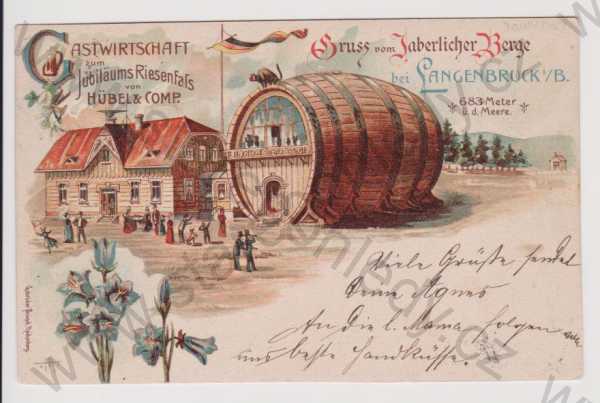 GASTWIRTSCHAFT
zum
Jubiläums Riesenfass
von
HÜBEL & COMP.
Gruss vom Jaberlicher Berge
bei LANGENBRUCK i/B.
683 Meter
ü. d. Meere.
Viele Grüße sendet
Deine Agnes
An die l. Mama folgen
uns beste Handküsse.